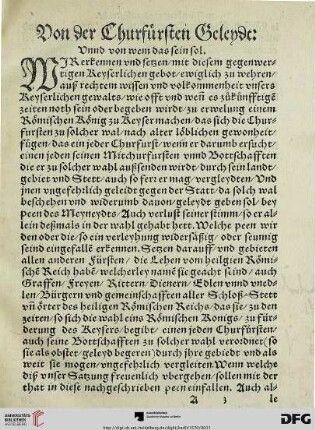 Von der Churfürsten Geleydt:
Vnnd von wem das sein sol.
WIR erkennen vnd setzen/ mit diesem gegenwer-
tigen Keyserlichen gebot/ ewiglich zu wehren/
auß rechtem wissen vnd volkommenheit vnsers
Keyserlichen gewalts/ wie offt vnd weñ es zůkünfftigē
zeiten noth sein oder begeben würdt/ zu erwelung einem
Römischen König zu Keyser machen/ das sich die Chur-
fürsten zu solcher wal/ nach alter löblichen gewonheit
fügen/ das ein jeder Churfürst/ wenn er darumb ersucht/
einen jeden seinen Mitchurfürsten vnnd Bottschafften
die er zu solcher wahl außsenden wirdt/ durch sein landt
gebiet vnd Stett/ auch so ferz er mag/ vergleydten/ Vnd
jnen vngefehrlich geleidt gegen der Statt/ da solch wal
beschehen/ vnd widerumb dauon/ geleydt geben sol/ bey
peen des Meyneydts. Auch verlust seiner stimm/ so er al-
lein deßmals in der wahl gehabt hett. Welche peen wir
den oder die/ so ein verleyhung widersässig/ oder seumig
seind eingefallē erkennen. Setzen darauff vnd gebieten
allen anderen Fürsten/ die Lehen vom heiligten Römi-
schē Reich habē/ welcherley namē sie geacht seind/ auch
Graffen/ Freyen/ Rittern/ Dienern/ Edlen vnnd vned-
len/ Bürgern vnd gemeinschafften aller Schloß/ Stett
vñ örter des heiligen Römischen Reichs/ das sie/ zu den
zeiten/ so sich die wahl eins Römischen Königs/ zu für-
derung des Keysers/ begibt/ einen jeden Churfürsten/
auch seine Bottschafften zu solcher wahl verordnet/ so
sie als obstet/ geleyd begeren/ durch jhre gebiedt vnd als
weit sie mögen/ vngefehrlich vergleiten Wenn welche
diß vnser Satzung freuenlich vbergehen/ sollen mit der
that in diese nachgeschrieben pein einfallen. Auch al-
A 3 le
UNIVERSITÄTS-
BIBLIOTHEK
HEIDELBERG
DFG